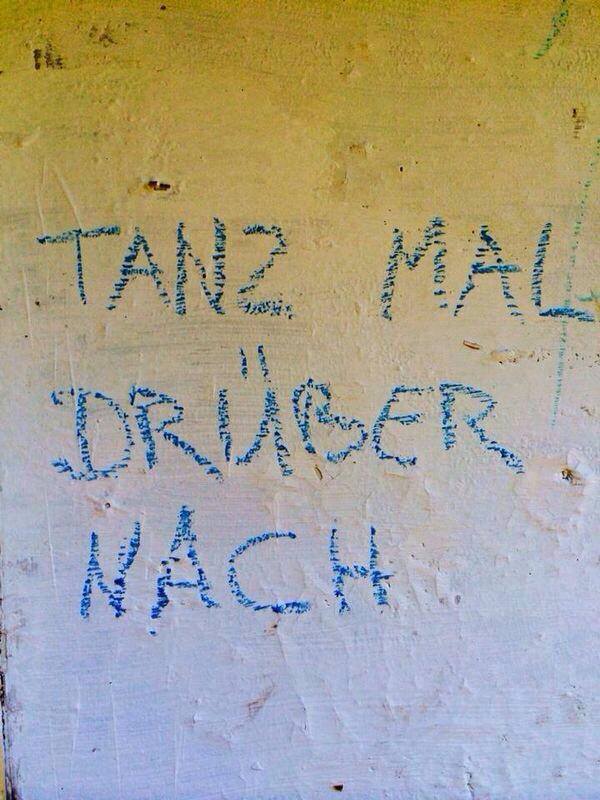 TANZ MAL
DRÜBER
NACH